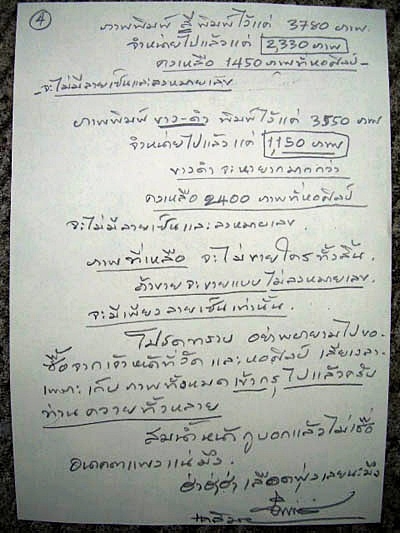 4
ภาพพิมพ์ สี พิมพ์ไว้แค่ 3780 ภาพ
จำหน่ายไปแล้วแค่ 2,330 ภาพ
คงเหลือ 1450 ภาพที่หอศิลป์
จะไม่มีลายเซ็นและลงหมายเลข
ภาพพิมพ์ ขาว-ดำ พิมพ์ไว้แค่ 3550 ภาพ
จำหน่ายไปแล้ว แค่ 1,150 ภาพ
ขาวดำ จะหายากมากกว่า
คงเหลือ 2400 ภาพที่หอศิลป์
จะไม่มีลายเซ็น และลงหมายเลข
ภาพที่เหลือ จะไม่ขายใครทั้งสิ้น.
ถ้าขายจะขายแบบไม่ลงหมายเลข
จะมีเพียงลายเซ็นเท่านั้น.
โปรดทราบ อย่าพยายามไปขอ
ซื้อจากเจ้าหน้าที่วัด และหอศิลป์ เสียเวลา
เพราะเก็บภาพทั้งหมดเข้ากรุไปแล้วครับ
ท่านควายทั้งหลาย
สมน้ำหน้า กูบอกแล้วไม่เชื่อ
อนาคตแพงแน่มึง.
ฮ่าฮ่าฮ่า เลือดพุ่งเลยนะมึง